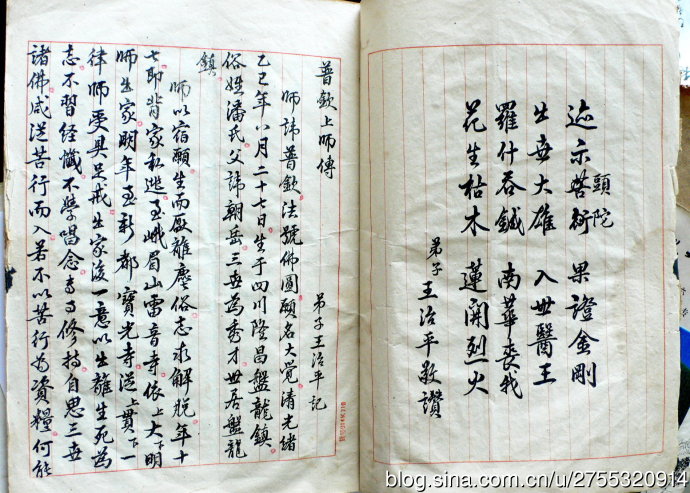 頭陀
迹示苦行 果證金剛
出世大雄 入世醫王
羅什吞鍼 南華喪我
花生枯木 蓮開烈火
弟子王治平敬讚
普欽上師傳
弟子王治平記
師諱普欽法號佛圓願名大覺清光緒
乙巳年八月二十七日生于四川隆昌盤龍鎮。
俗姓潘氏父諱朝岳三世為秀才世居盤龍
鎮
師以宿願生而厭離塵俗志求解脫年十
七即背家私逃至峨眉山雷音寺依上大下明
師出家。明年至新都寶光寺從上貫下一
律師受具足戒出家後一意以出離生死為
志不習經懺不學唱念專事修持自思三世
諸佛咸從苦行而入若不以苦行為資糧何能
blog.sina.com.cn/u/2755320914